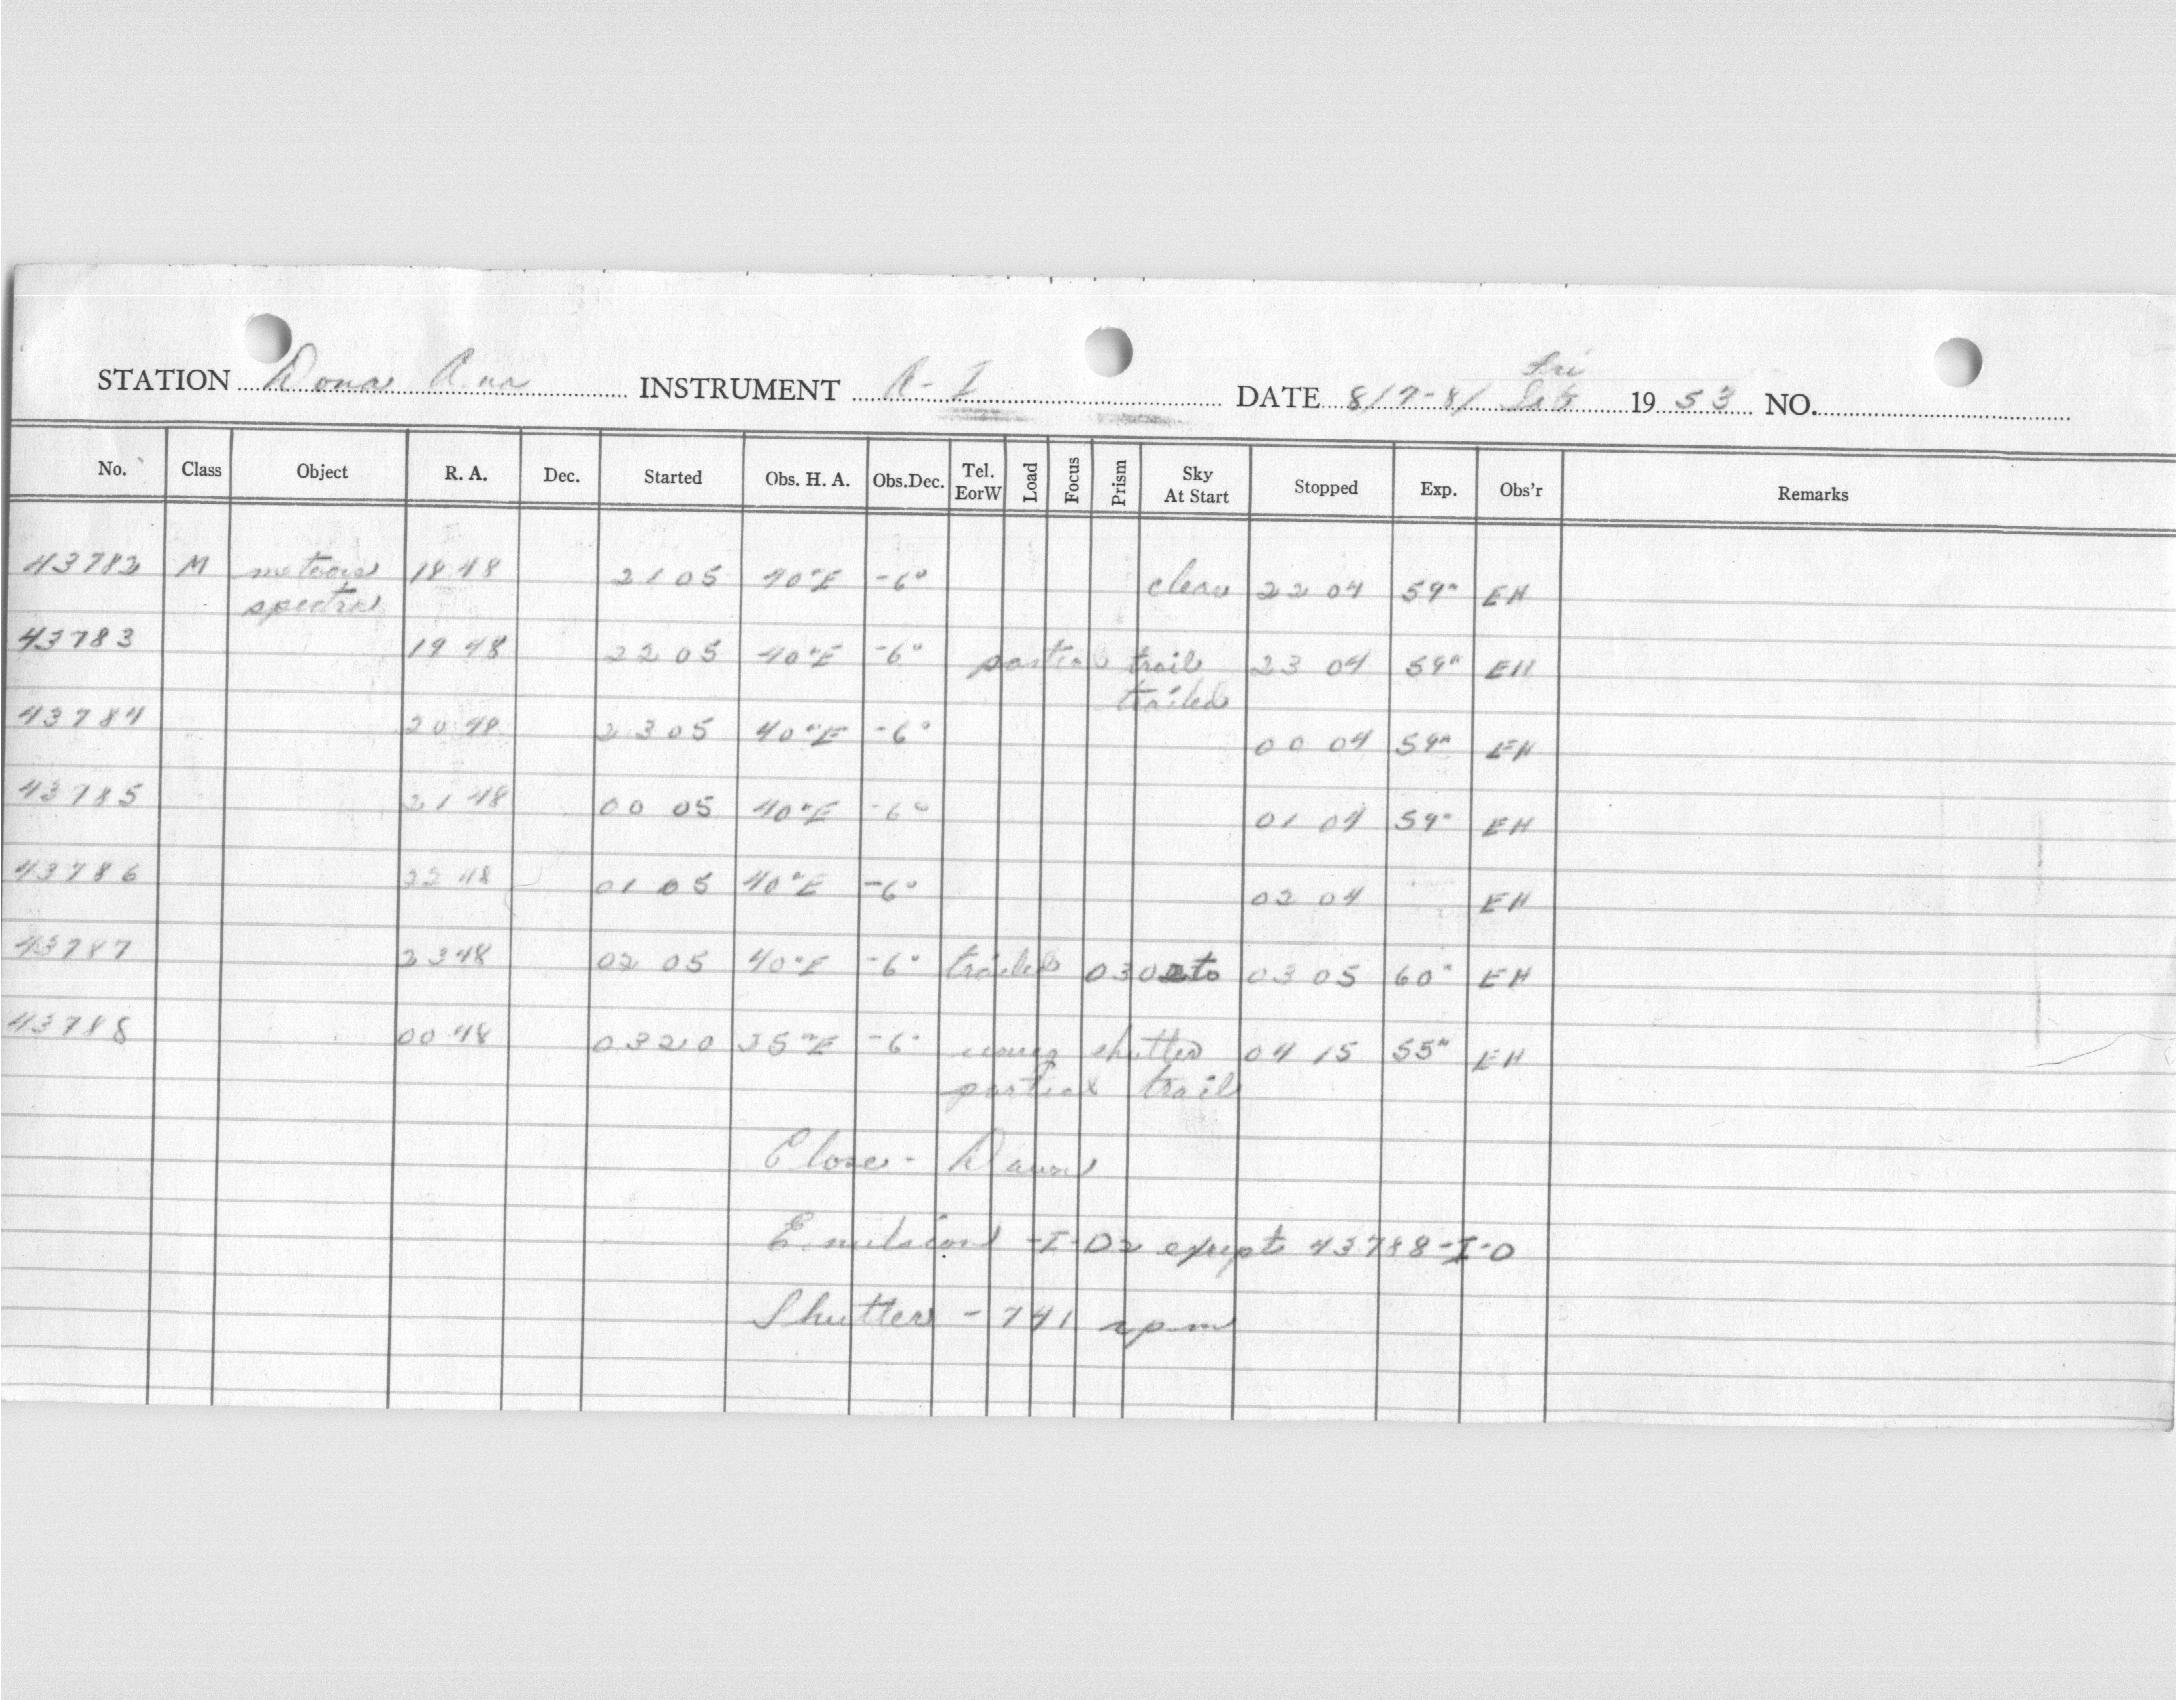 STATION Dona Ana INSTRUMENT A-I DATE 8/7-8/ Fri Sat 1953 NO.
No. Class Object R. A. Dec. Started Obs. H. A. Obs.Dec. Tel. EorW Load Focus Prism Sky At Start Stopped Exp. Obs'r Remarks
43782 M meteor 18 48 21 05 40mE -6° clear 22 04 59m EH
spectra
43783 19 48 22 05 40mE -6° partial trail 23 04 59m EH
trailed
43784 20 48 23 05 40mE -6° 00 04 59m EH
43785 21 48 00 05 40mE -6° 01 04 59m EH
43786 22 48 01 05 40mE -6° 02 04 EH
43787 23 48 02 05 40mE -6° trailed 0302 to 03 05 60m EH
43788 00 48 03 20 35mE -6° shutter 04 15 55m EH
partial trail
Close - Dawn
Emulsion -I-D2 except 43788-I-O
Shutter - 741 rpm